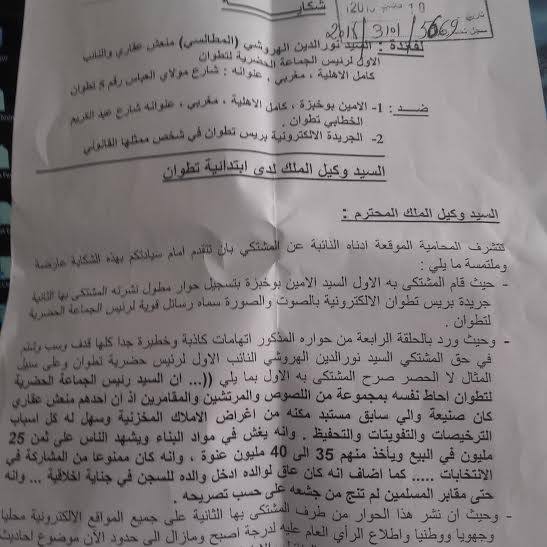 شكاية
2015/3101/5669
لفائدة : السيد نورالدين الهروشي (المطالسي) منعش عقاري والنائب
الاول لرئيس الجماعة الحضرية لتطوان
كامل الاهلية ، مغربي ، عنوانه : شارع مولاي العباس رقم 5 تطوان
ضد : 1- الامين بوخبزة ، كامل الاهلية ، مغربي ، عنوانه شارع عبد الكريم
الخطابي تطوان .
2- الجريدة الالكترونية بريس تطوان في شخص ممثلها القانوني
السيد وكيل الملك لدى ابتدائية تطوان
السيد وكيل الملك المحترم :
تتشرف المحامية الموقعة ادناه النائبة عن المشتكي بان تتقدم امام سيادتكم بهذه الشكاية عارضة
وملتمسة ما يلي :
- حيث قام المشتكى به الاول السيد الامين بوخبزة بتسجيل حوار مطول نشرته المشتكى بها الثانية
جريدة بريس تطوان الالكترونية بالصوت والصورة سماه رسائل قوية لرئيس الجماعة الحضرية
لتطوان .
- وحيث ورد بالحلقة الرابعة من حواره المذكور اتهامات كاذبة وخطيرة جدا كلها قذف وسب وشتم
في حق المشتكي السيد نورالدين الهروشي النائب الاول لرئيس حضرية تطوان وعلى سبيل
المثال لا الحصر صرح المشتكى به الاول بما يلي ((... ان السيد رئيس الجماعة الحضرية
لتطوان احاط نفسه بمجموعة من اللصوص والمرتشين والمقامرين اذ ان احدهم منعش عقاري
كان صنيعة والي سابق مستبد مكنه من اغراض الاملاك المخزنية وسهل له كل اسباب
الترخيصات والتفويتات والتحفيظ . وانه يغش في مواد البناء ويشهد الناس على ثمن 25
مليون في البيع ويأخذ منهم 35 الى 40 مليون عنوة ، وانه كان ممنوعا من المشاركة في
الانتخابات ..... كما اضاف انه كان عاق لوالده ادخل والده للسجن في جناية اخلاقية ... وانه
حتى مقابر المسلمين لم تنج من جشعه على حسب تصريحه .
- وحيث أن نشر هذا الحوار من طرف المشتكى بها الثانية على جميع المواقع الالكترونية محليا
وجهويا ووطنيا واطلاع الرأي العام عليه لدرجة اصبح ومازال الى حدود الآن موضوع احاديث